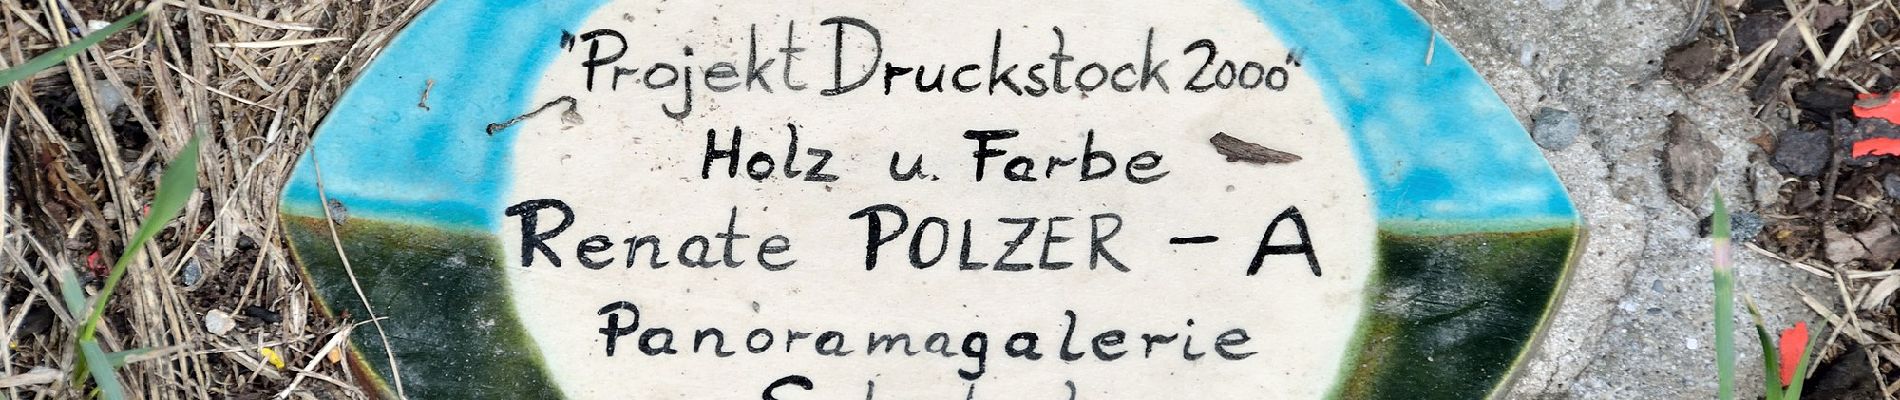 "Projekt Druckstock 2000"
Holz u. Farbe
Renate POLZER - A
Panoramagalerie